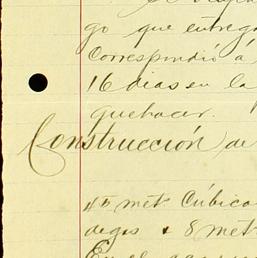 go que entreg
Correspondió á
16 dias en la
quehacer.
Construcción de
met Cúbico
8 met
En el